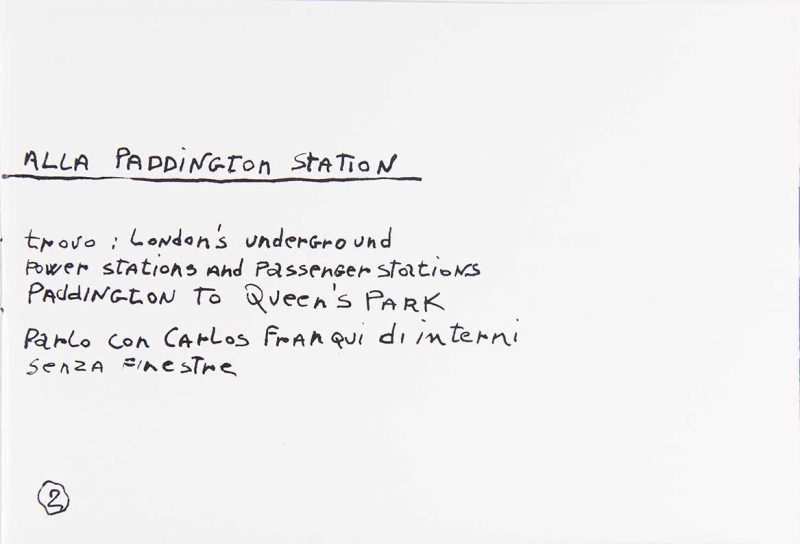 ALLA PADDINGTON STATION
trovo : London's underground
Power stations and Passenger stations
PADDINGTON TO Queen's PARK
Parlo con CARLOS FRANQUI di interni
senza finestre
2